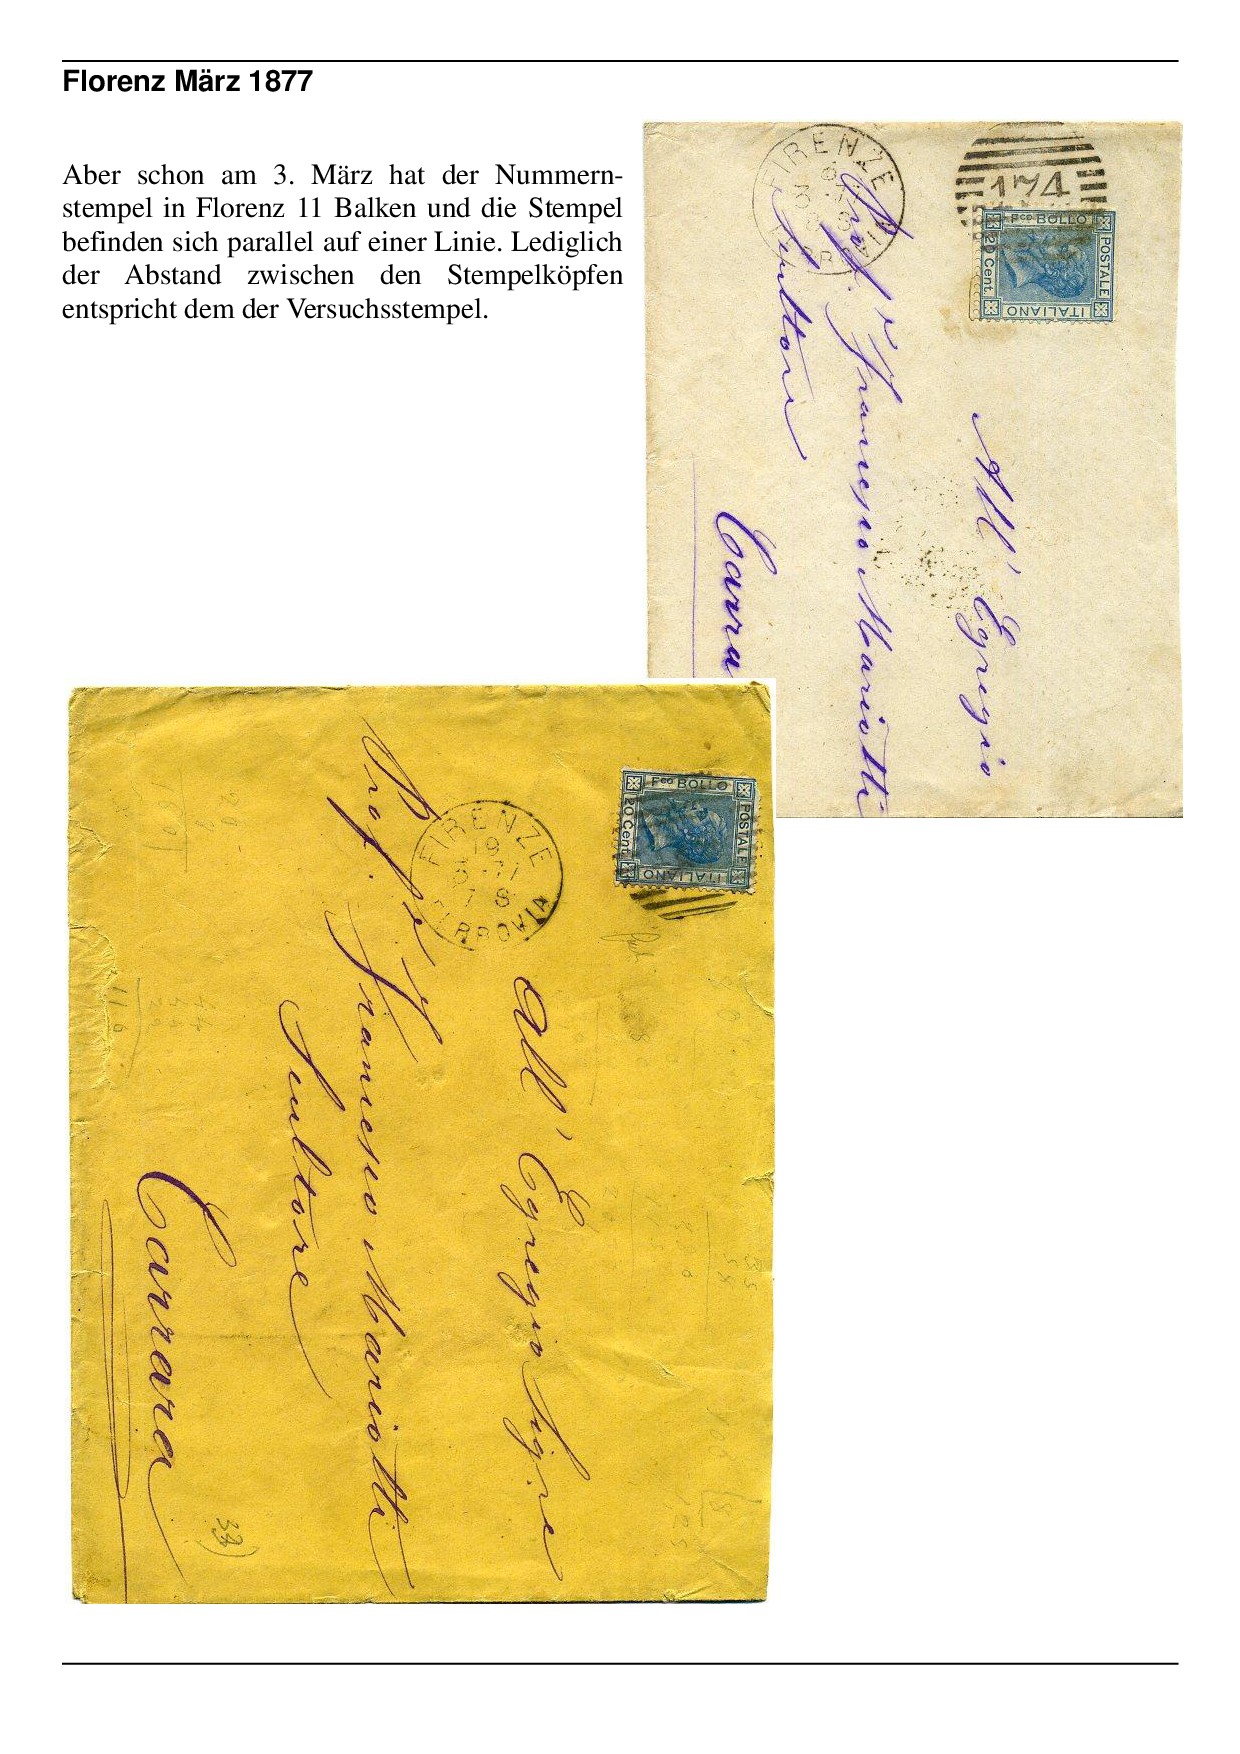 Florenz März 1877
Aber schon am 3. März hat der Nummern-
stempel in Florenz 11 Balken und die Stempel
befinden sich parallel auf einer Linie. Lediglich
der Abstand zwischen den Stempelköpfen
entspricht dem der Versuchsstempel.
FIRENZE
174
Fco BOLLO
POSTALE
20 Cent.
ITALIANO
All' Egregio
Prof.
Mariotti
Carra
Fco BOLLO
POSTALE
20 Cent.
ITALIANO
FIRENZE
19
7 8
FERROVIA
All' Egregio
Prof.
Mariotti
Scultore
Carrara